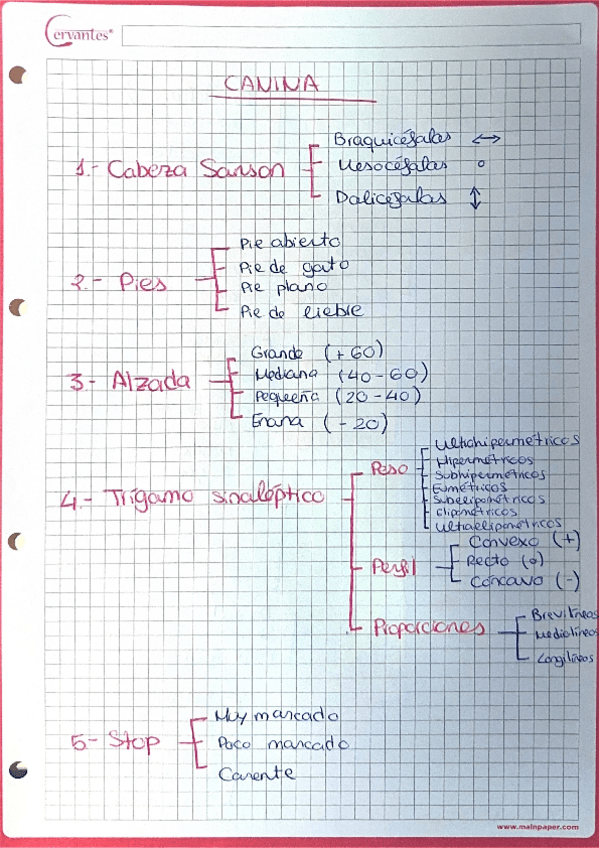 Cervantes®
CANINA
1.- Cabeza Sanson
Braquicéfalas ↔
Mesocéfalas o
Dolicéfalas ↕
2.- Pies
Pie abierto
Pie de gato
Pie plano
Pie de liebre
3- Alzada
Grande (+60)
Mediana (40-60)
Pequeña (20-40)
Enana (-20)
4.- Trígamo sinaléptico
Peso
Ultrahipermétricos
Hipermétricos
Subhipermétricos
Eumétricos
Subelipométricos
elipométricos
Ultraelipométricos
Perfil
Convexo (+)
Recto (o)
Cóncavo (-)
Proporciones
Brevilíneos
Mediolíneos
Longilíneos
5- Stop
Muy marcado
Poco marcado
Carente
www.mainpaper.com